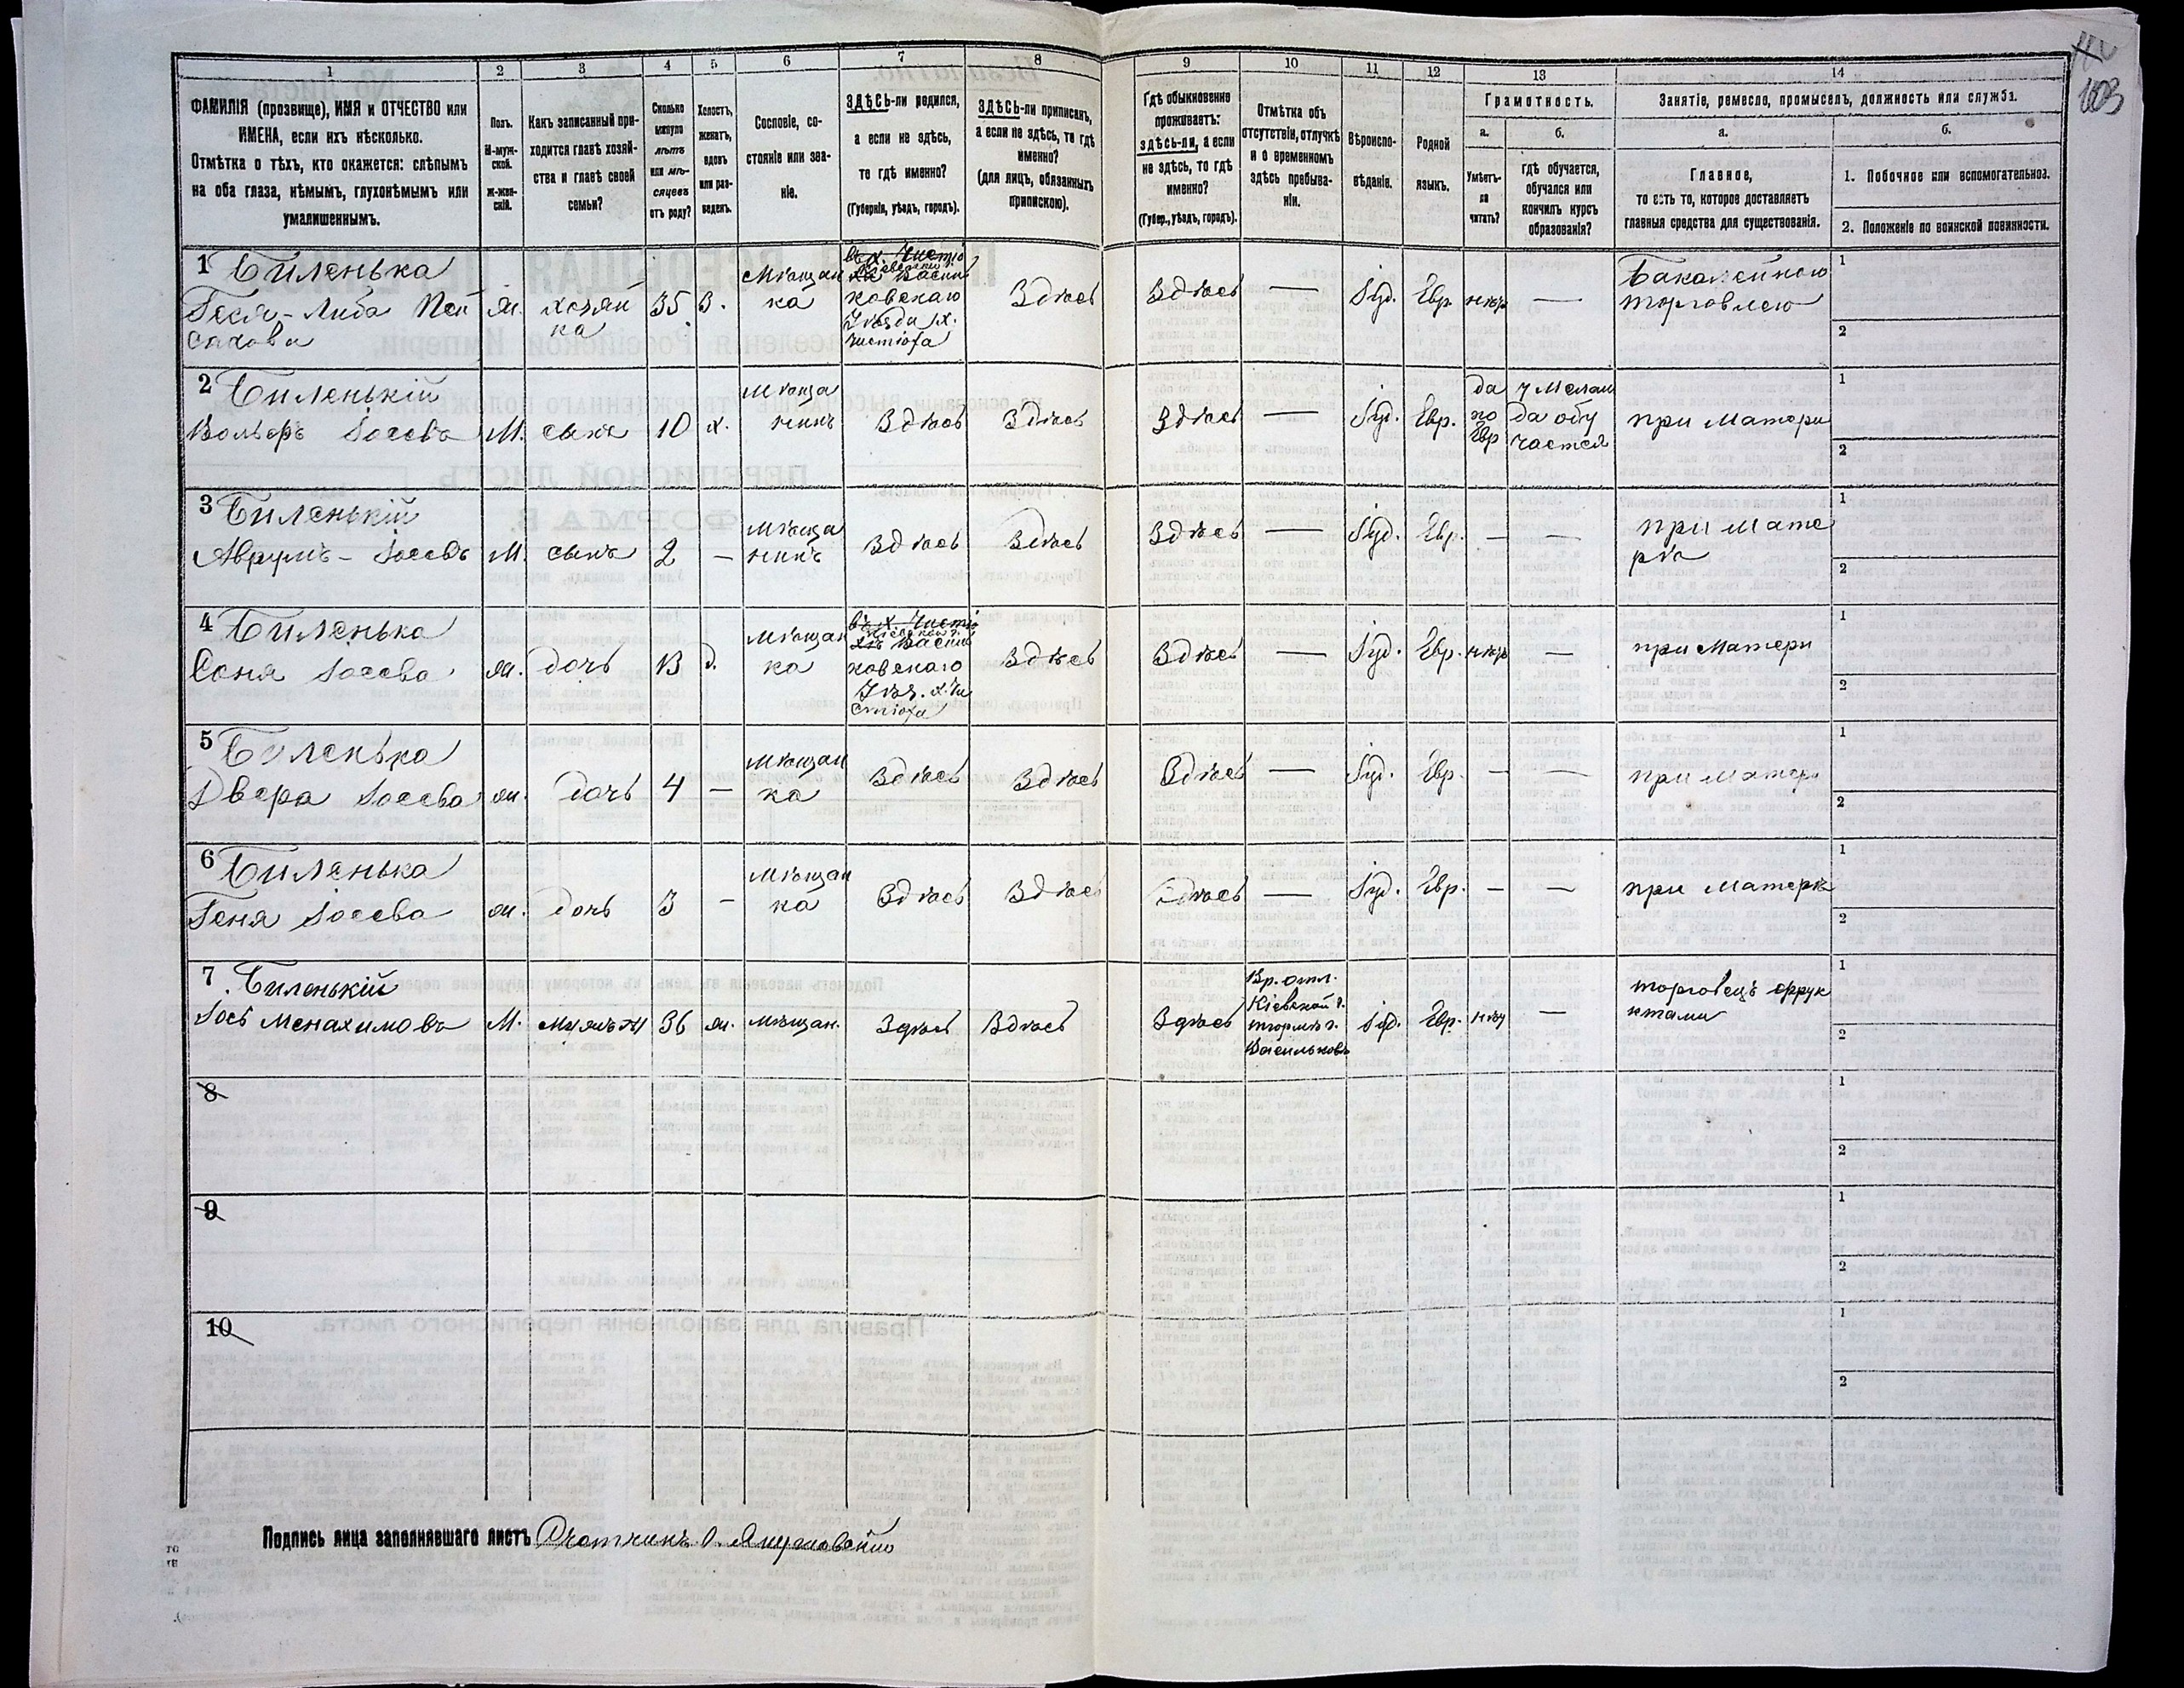 103
1
2
3
4
5
6
7
8
9
10
11
12
13
14
ФАМИЛІЯ (прозвище), ИМЯ и ОТЧЕСТВО или
ИМЕНА, если ихъ нѣсколько.
Отмѣтка о тѣхъ, кто окажется: слѣпымъ
на оба глаза, нѣмымъ, глухонѣмымъ или
умалишеннымъ.
Полъ.
М-муж-
ской.
Ж-жен-
скій.
Какъ записанный при-
ходится главѣ хозяй-
ства и главѣ своей
семьи?
Сколько
минуло
лѣтъ
или мѣ-
сяцевъ
отъ роду?
Холостъ,
женатъ,
вдовъ
или раз-
веденъ.
Сословіе, со-
стояніе или зва-
ніе.
ЗДѢСЬ-ли родился,
а если не здѣсь,
то гдѣ именно?
(Губернія, уѣздъ, городъ).
ЗДѢСЬ-ли приписанъ,
а если не здѣсь, то гдѣ
именно?
(для лицъ, обязанныхъ
припискою).
Гдѣ обыкновенно
проживаетъ:
здѣсь-ли, а если
не здѣсь, то гдѣ
именно?
(Губер., уѣздъ, городъ).
Отмѣтка объ
отсутствіи, отлучкѣ
и о временномъ
здѣсь пребыва-
ніи.
Вѣроиспо-
вѣданіе.
Родной
языкъ.
Грамотность.
а.
б.
Умѣетъ-
ли
читать?
гдѣ обучается,
обучался или
кончилъ курсъ
образованія?
Занятіе, ремесло, промыселъ, должность или служба.
а.
б.
Главное,
то есть то, которое доставляетъ
главныя средства для существованія.
1. Побочное или вспомогательное.
2. Положеніе по воинской повинности.
1 Биленька
Гекя-Либа Пей
сахова
ж. хозяй
ка
35 В.
Мѣщан
ка
въ х. Чистіо
Васил
ковскаго
Уѣзда х.
Чистюха
Здѣсь
Здѣсь — Іуд. Евр. нѣтъ —
Бакалейною
торговлею
1
2
2 Биленькій
Вольфъ Іосевъ М. сынъ 10 х.
Мѣща
нинъ
Здѣсь Здѣсь Здѣсь — Іуд. Евр.
да
по
Евр
у Мелам
да обу
чается
при Матери
1
2
3 Биленькій
Аврумъ - Іосевъ М. сынъ 2 —
Мѣща
нинъ
Здѣсь Здѣсь Здѣсь — Іуд. Евр. — —
при Мате
рѣ
1
2
4 Биленька
Соня Іосева ж. дочь 13 д.
Мѣщан
ка
въ х. Чистіо
Кіевской г.
Васил
ковскаго
Уѣз. х. Чи
стюха
Здѣсь Здѣсь — Іуд. Евр. нѣтъ —
при Матери
1
2
5 Биленька
Двера Іосева ж. дочь 4 —
Мѣщан
ка
Здѣсь Здѣсь Здѣсь — Іуд. Евр. — —
при Матери
1
2
6 Биленька
Геня Іосева ж. дочь 3 —
Мѣщан
ка
Здѣсь Здѣсь Здѣсь — Іуд. Евр. — —
при Матери
1
2
7 Биленькій
Іось Менахимовъ М. 36 ж. Мѣщан. Здѣсь Здѣсь Здѣсь
Вр. отл.
Кіевской г.
тюрмѣ г.
Васильковъ
Іуд. Евр. нѣт —
торговецъ фрук
ктами
1
2
8
1
2
9
1
2
10
1
2
Подпись лица заполнявшаго листъ Счетчикъ